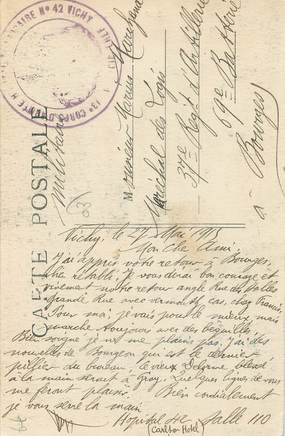 CARTE POSTALE
HÔPITAL TEMPORAIRE Nº 42 VICHY
13e CORPS D'ARMÉE
Militaire
Monsieur Marius
Maréchal des Logis
37e Régt d'Artillerie
69e Batterie
à Bourges
Vichy, le 27 Mai 1915
Mon Cher Ami.
J'ai appris votre retour à Bourges,
Je vous dirai bon courage et
vivement notre retour angle Rue des
Grande Rue avec cas, chez Francis.
Pour moi, je vais pour le mieux, mais
marche toujours avec des béquilles.
Bien soigné je ne me plains pas. J'ai des
nouvelles de Bourgeon qui est le dernier
pilier du bureau, le vieux Delorme blessé
à la main serait à Gray. Quelques lignes de vous
me feront plaisir. Bien cordialement
je vous serre la main
Hôpital 42 Salle 110
(Carlton Hotel)